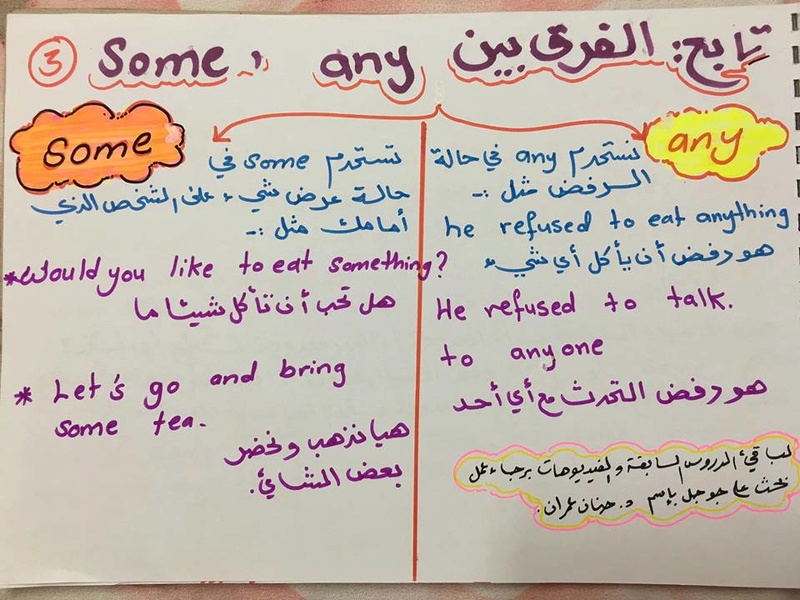 تابع: الفرق بين any ، Some ③
any
نستخدم any في حالة
الرفض مثل :-
he refused to eat anything
هو رفض أن يأكل أي شيء
He refused to talk.
to anyone
هو رفض التحدث مع أي أحد
لباقي الدروس السابقة والفيديوهات برجاء عمل
بحث على جوجل بإسم د. حنان عمران.
Some
نستخدم some في
حالة عرض شيء على الشخص الذي
أمامك مثل :-
*Would you like to eat something?
هل تحب أن تأكل شيئا ما
* Let's go and bring
some tea.
هيا نذهب ونحضر
بعض الشائ.